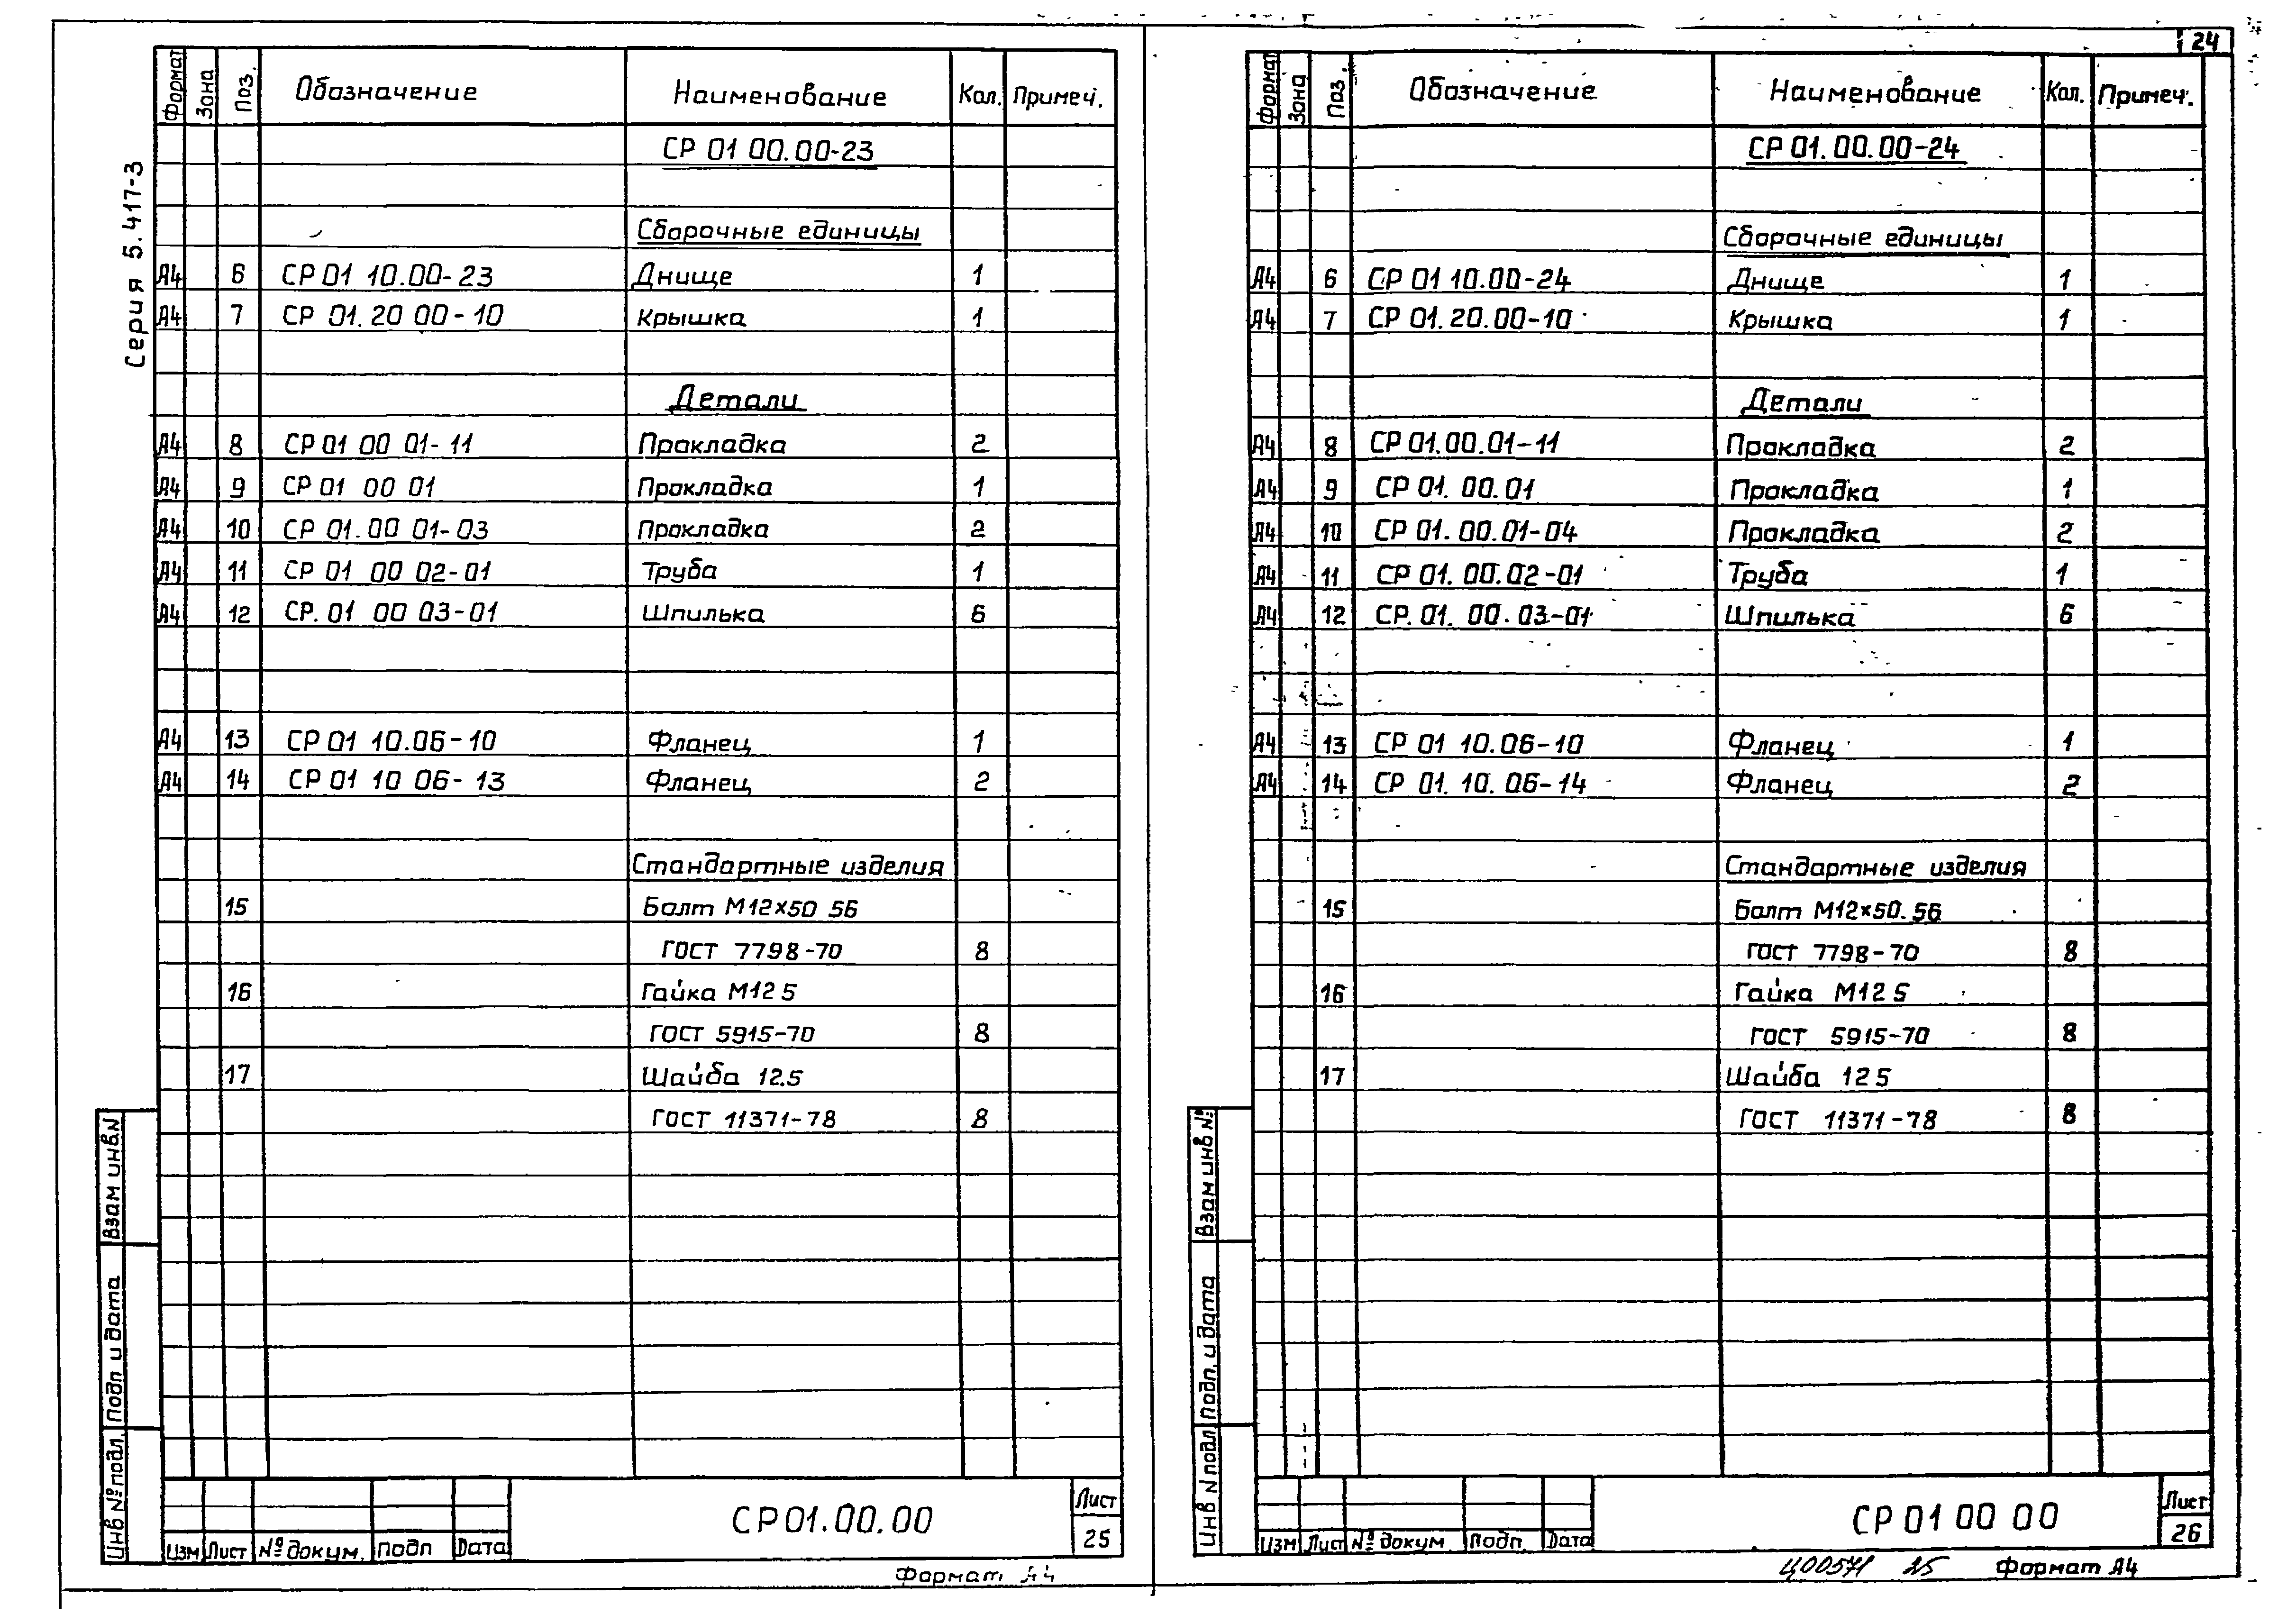 Серия 5.417-3
Формат Зона Поз. Обозначение Наименование Кол. Примеч.
СР 01 00.00-23
Сборочные единицы
А4 6 СР 01 10.00-23 Днище 1
А4 7 СР 01.20 00-10 Крышка 1
Детали
А4 8 СР 01 00 01-11 Прокладка 2
А4 9 СР 01 00 01 Прокладка 1
А4 10 СР 01.00 01-03 Прокладка 2
А4 11 СР 01 00 02-01 Труба 1
А4 12 СР. 01 00 03-01 Шпилька 6
А4 13 СР 01 10.06-10 Фланец 1
А4 14 СР 01 10 06-13 Фланец 2
Стандартные изделия
15 Болт М12х50 56
ГОСТ 7798-70 8
16 Гайка М12 5
ГОСТ 5915-70 8
17 Шайба 12.5
ГОСТ 11371-78 8
Взам инв.N
Подп и дата
Инв №подл.
Изм Лист № докум. Подп Дата
СР 01.00.00
Лист
25
Формат А4
24
Формат Зона Поз Обозначение Наименование Кол. Примеч.
СР 01.00.00-24
Сборочные единицы
А4 6 СР 01 10.00-24 Днище 1
А4 7 СР 01.20.00-10 Крышка 1
Детали
А4 8 СР 01.00.01-11 Прокладка 2
А4 9 СР 01.00.01 Прокладка 1
А4 10 СР 01.00.01-04 Прокладка 2
А4 11 СР 01.00.02-01 Труба 1
А4 12 СР. 01. 00. 03-01 Шпилька 6
А4 13 СР 01 10.06-10 Фланец 1
А4 14 СР 01. 10. 06-14 Фланец 2
Стандартные изделия
15 Болт М12х50. 56
ГОСТ 7798-70 8
16 Гайка М12 5
ГОСТ 5915-70 8
17 Шайба 12 5
ГОСТ 11371-78 8
Взам инв №
Подп. и дата
Инв N подл
Изм Лист № докум Подп. Дата
СР 01 00 00
Лист
26
Ц00571 25 Формат А4